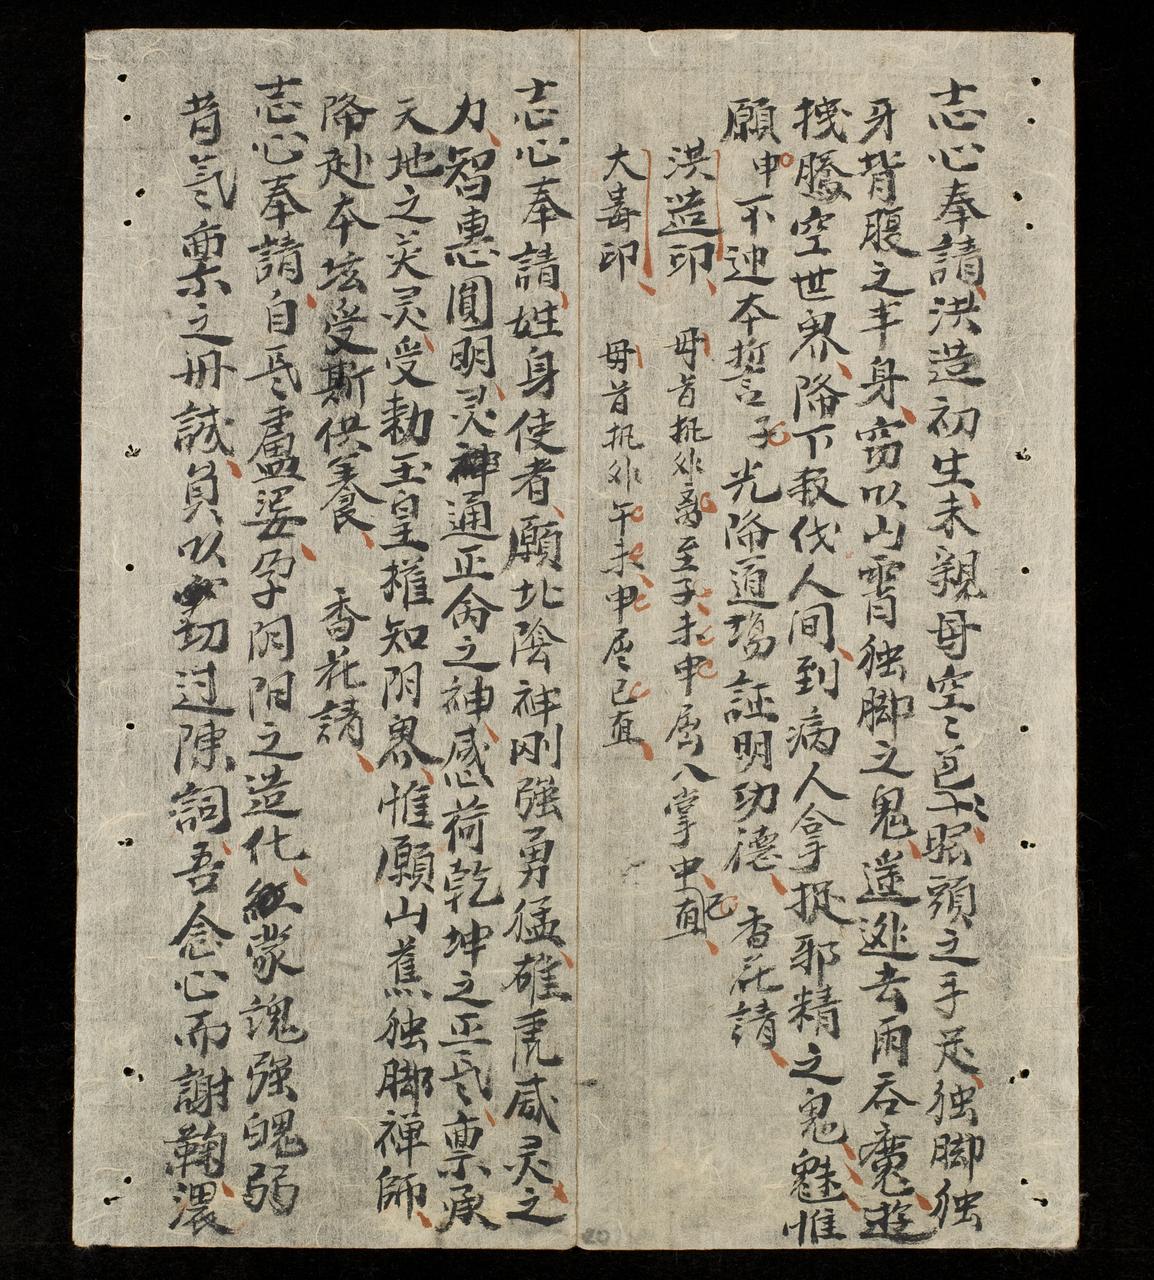 志心奉請洪造初生未親母空〻色卡照頭之手足独脚独
身背腹之半身窃以山霄独脚之鬼遂逊去雨吞魔遊
拽騰空世界降下殺伐人间到病人拿捉邪精之鬼魅惟
願申不迎本誓子光降道場証明功德 香花請
洪造印 毋首挑外离至子未申唇八掌中直
大毒印 毋首挑外午未申唇巳直
志心奉請姓身使者願北陰神刚强勇猛碓虎咸灵之
力智惠圓明灵神通正俞之神感荷乾坤之正炁禀承
天地之英灵受勅玉皇摧知阴界惟願山蕉独脚禅師
降赴本垓受斯供養 香花請
志心奉請自炁盧婆孕阴阳之造化紅蒙魂强魄弱
昔炁禀之册誠負以切过陳詞吾念心而謝鞠